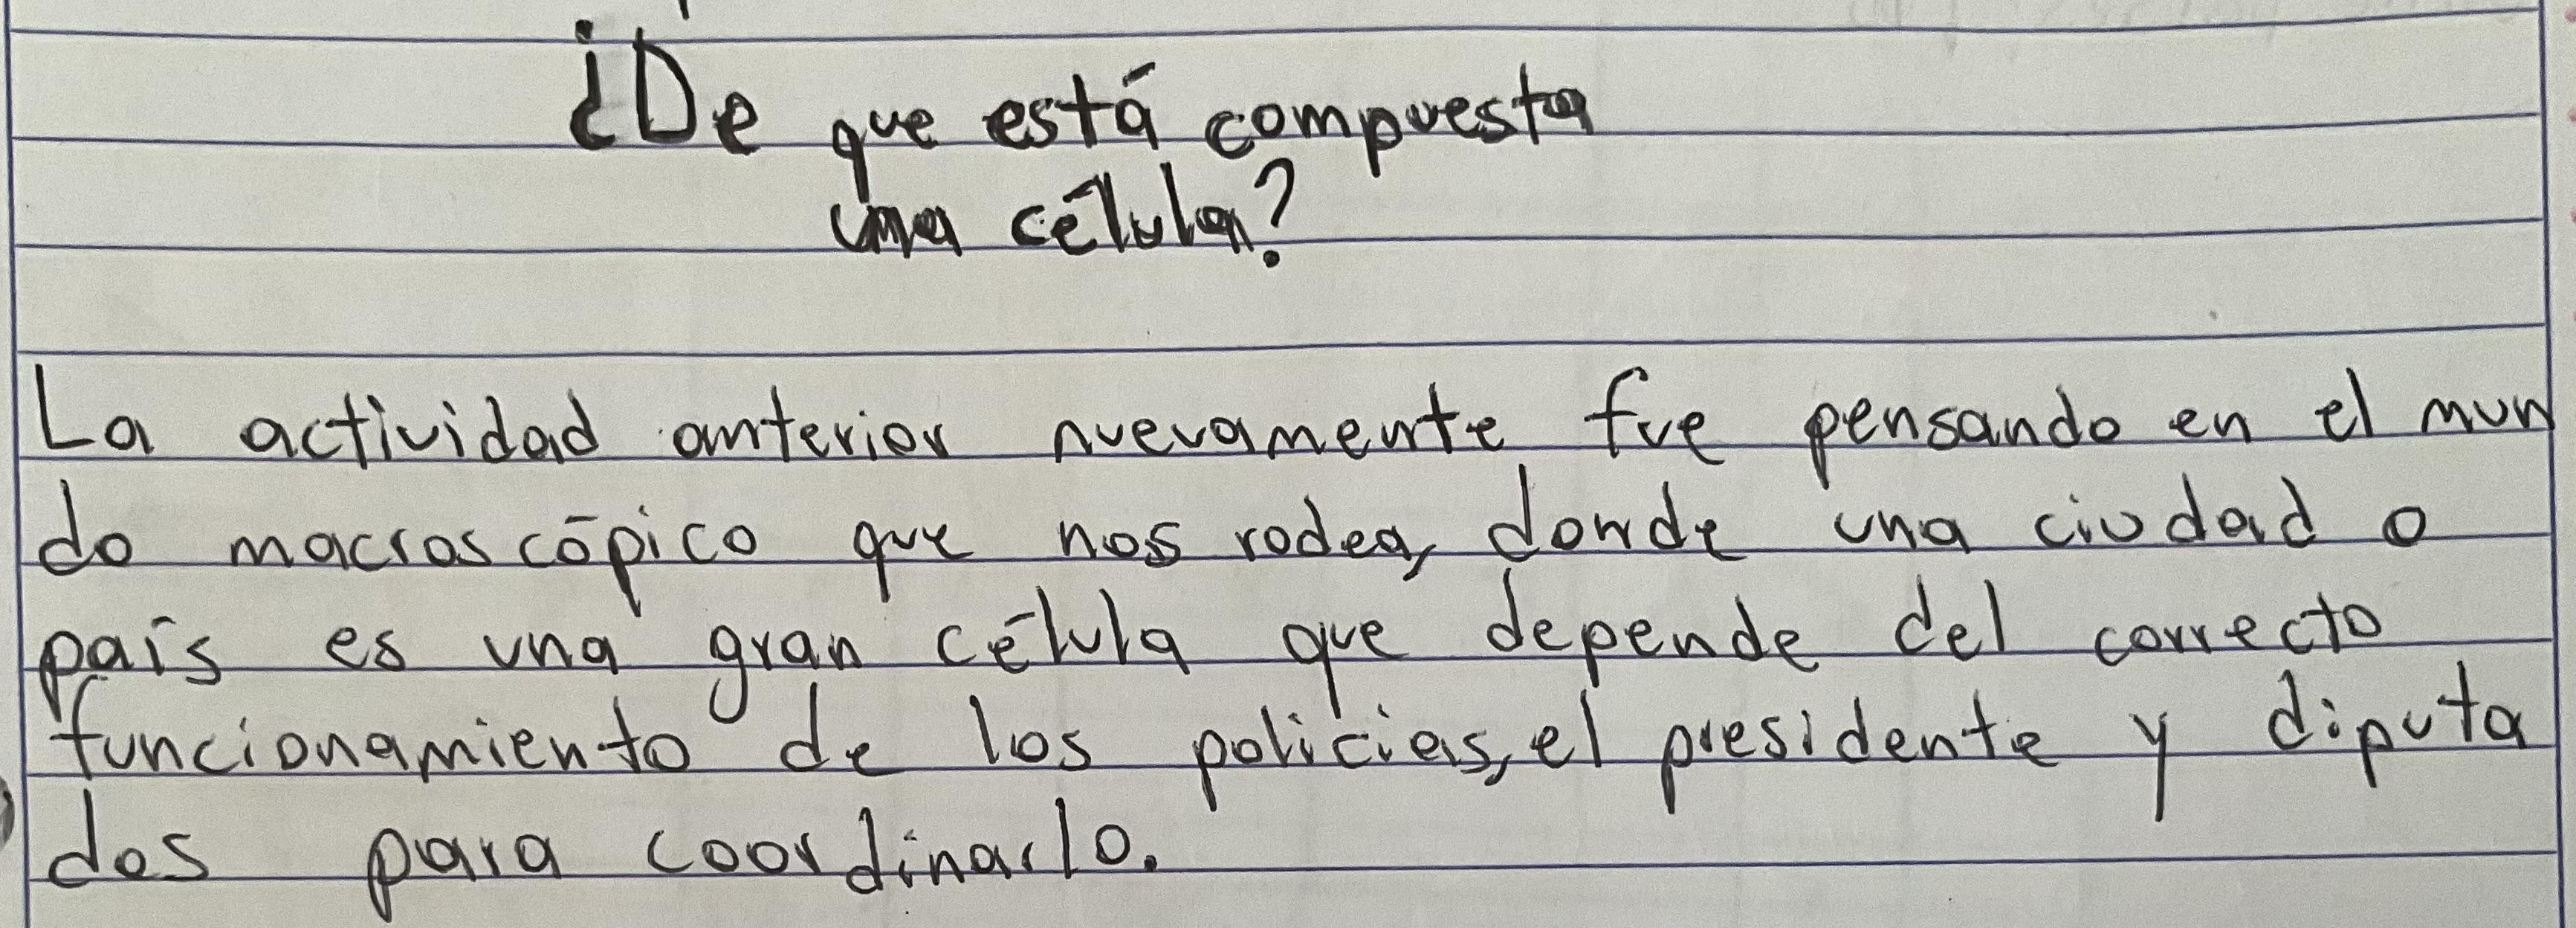 ¿De que está compuesta
una célula?
La actividad anterior nuevamente fue pensando en el mun
do macroscópico que nos rodea, donde una ciudad o
país es una gran célula que depende del correcto
funcionamiento de los policías, el presidente y diputa
dos para coordinarlo.